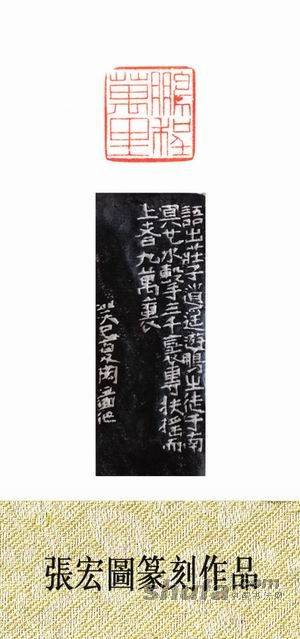 鵬程
萬里
語出莊子逍遙遊鵬之徙于南
冥也水擊三千裏專扶搖而
上者九萬裏
癸巳夏
張宏圖篆刻作品
.com